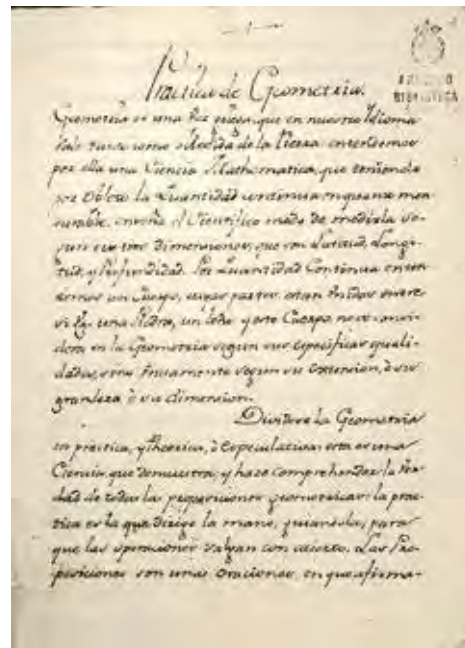 1
Practica de Geometria.
ARCHIVO
BIBLIOTECA
Geometria es una voz griega, que en nuestro Idioma
vale tanto como Medida de la tierra entendemos
por ella una Ciencia Mathematica, que teniendo
por Objeto la Quantidad continua en quanto men
surable, enseña el Cientifico modo de medirla se-
gun sus tres dimensiones, que son Latitud, Longi-
tud, y Profundidad. Por Quantidad Continua enten
demos un Cuerpo, cuyas partes estan Unidas entre
si una Piedra, un leño y este Cuerpo no se consi-
dera en la Geometria segun sus especificas quali-
dades, sino unicamente segun su extension, ò su
grandeza ò su dimension.
Dividese la Geometria
en practica, y Theorica, ò Especulativa: esta es una
Ciencia, que demuestra, y haze comprehender la Ver
dad de todas las proposiciones geometricas: la prac-
tica es la que dirige la mano, guiandola, para
que las operaciones salgan con acierto. Las Pro-
posiciones son unas Oraciones, en que afirma-